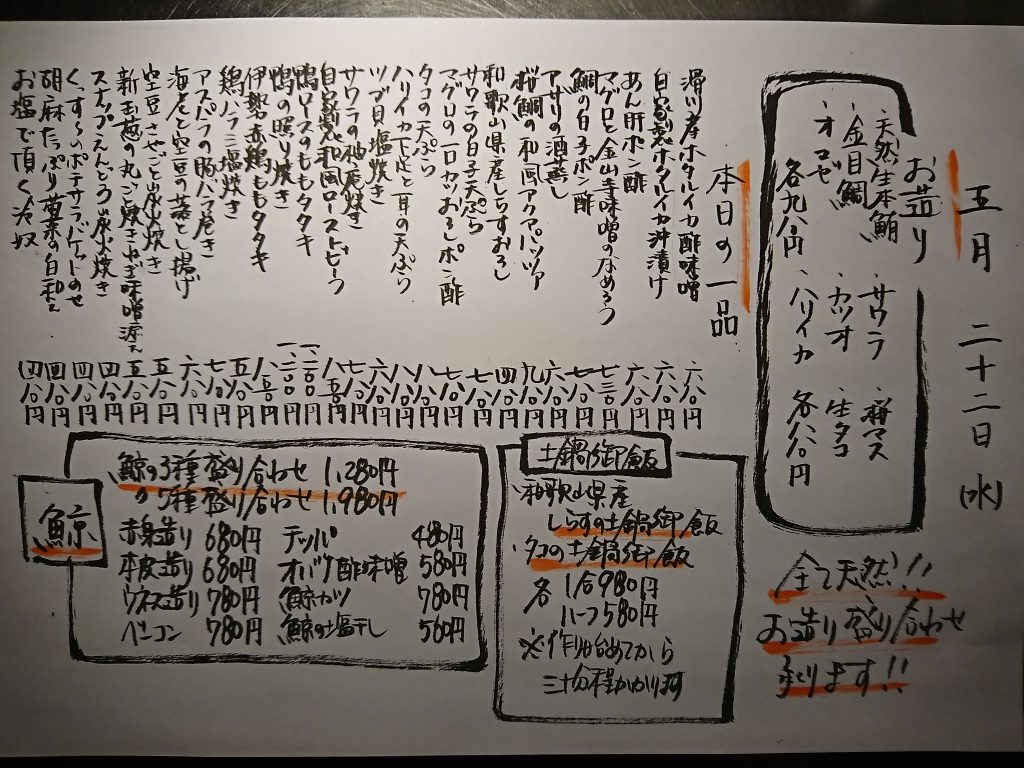 五月 二十二日(水)
お造り
・天然生本鮪 ・サワラ ・桜マス
・金目鯛 ・カツオ ・生タコ
・オコゼ ・ハリイカ
各九八〇円 各八八〇円
全て天然!!
お造り盛り合わせ
承ります!!
本日の一品
滑川産ホタルイカ酢味噌 六八〇円
自家製ホタルイカ沖漬け 六八〇円
あん肝ポン酢 六八〇円
マグロと金山寺味噌のなめろう 七三〇円
鯛の白子ポン酢 八〇円
アサリの酒蒸し 六八〇円
桜鯛の和風アクアパッツァ 九八〇円
和歌山県産しらすおろし 四八〇円
サワラの白子天ぷら 七八〇円
マグロの一口カツおろしポン酢 七八〇円
タコの天ぷら 八八〇円
ハリイカ下足と耳の天ぷら 八八〇円
ツブ貝塩焼き 六八〇円
サワラの柚庵焼き 七八〇円
自家製和風ローストビーフ 八五〇円
鴨ロースのももタタキ 一、二〇〇円
鴨の照り焼き 一、二〇〇円
伊勢赤鶏ももタタキ 八五〇円
鶏ハラミ塩焼き 五八〇円
アスパラの豚バラ巻き 七八〇円
海老と空豆の落とし揚げ 六八〇円
空豆さやごと炭火焼き 五八〇円
新玉葱の丸ごと焼きねぎ味噌添え 五八〇円
スナップえんどう炭火焼き 四八〇円
ポテサラバゲットのせ 四八〇円
胡麻たっぷり 菜の白和え 四八〇円
お塩で頂く冷奴 四八〇円
土鍋御飯
・和歌山県産
しらすの土鍋御飯
・タコの土鍋御飯
各 1合980円
ハーフ580円
※作り始めてから
三十分程かかります
鯨
鯨の3種盛り合わせ 1,280円
〃 5種盛り合わせ 1,980円
赤身造り 680円 テッパ 480円
本皮造り 680円 オバケ酢味噌 580円
ウネス造り 780円 鯨カツ 780円
ベーコン 780円 鯨の塩干し 560円